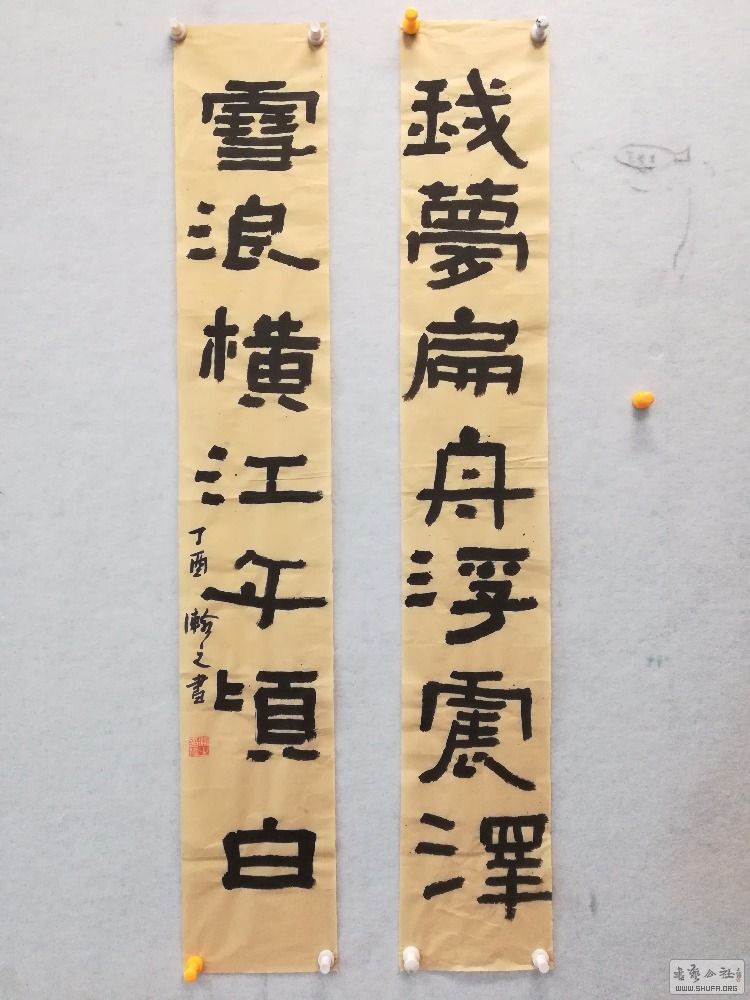 我夢扁舟浮震澤
雪浪橫江千頃白
丁酉 瀚之書
书艺公社
WWW.SHUFA.ORG